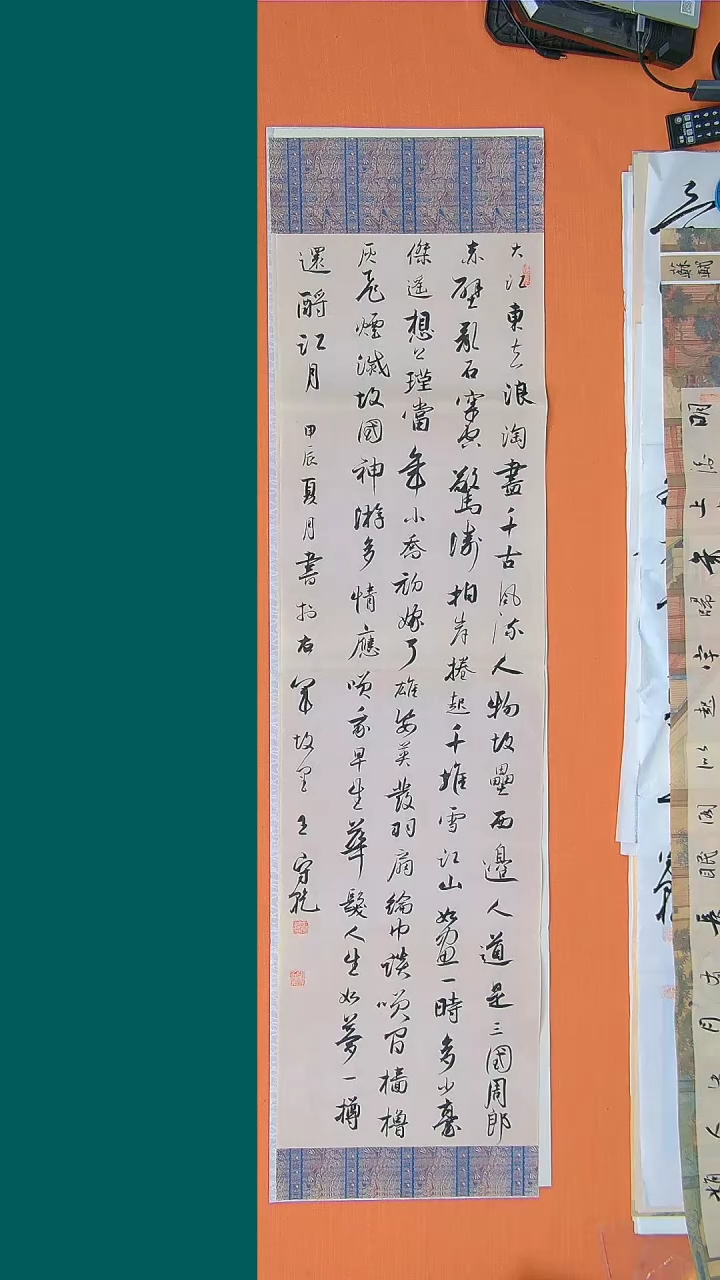 大江東去浪淘盡千古風流人物故壘西邊人道是三國周郎
赤壁亂石穿空驚濤拍岸捲起千堆雪江山如畫一時多少豪
傑遙想公瑾當年小喬初嫁了雄姿英發羽扇綸巾談笑間檣櫓
灰飛煙滅故國神游多情應笑我早生華髮人生如夢一樽
還酹江月 甲辰夏月書於右軍故里王守乾
蘇軾